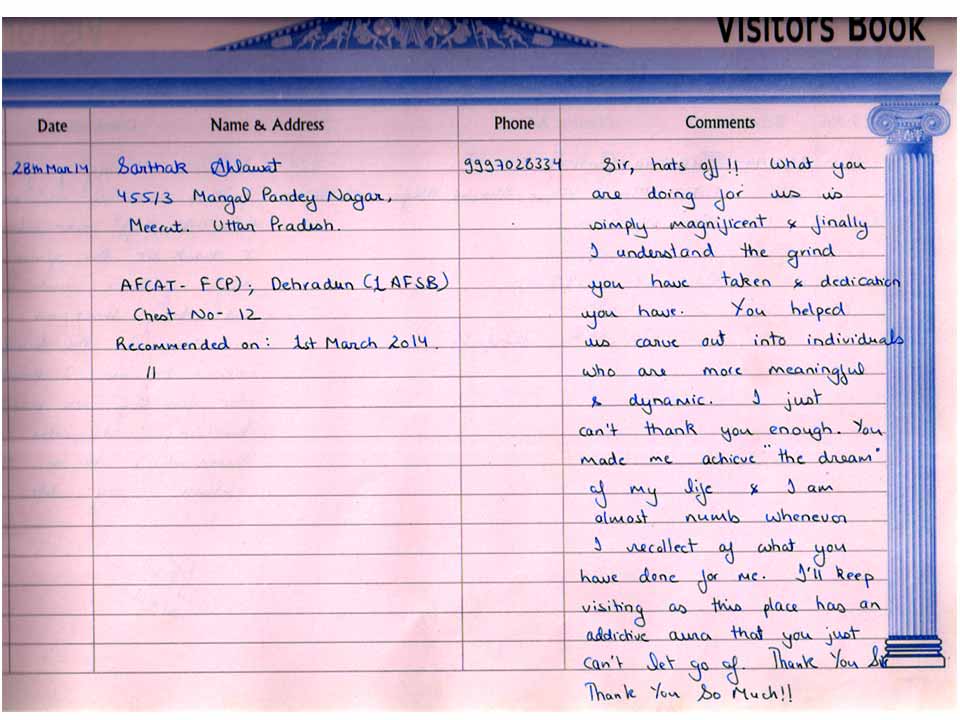 Visitors Book
Date Name & Address Phone Comments
28th Mar 14 Sarthak Ahlawat 9997028334 Sir, hats off !! What you
455/3 Mangal Pandey Nagar, are doing for us is
Meerut. Uttar Pradesh. simply magnificent & finally
I understand the grind
AFCAT- FCP); Dehradun (1 AFSB) you have taken & dedication
Chest No- 12 you have. You helped
Recommended on: 1st March 2014. us carve out into individuals
11 who are more meaningful
& dynamic. I just
can't thank you enough. You
made me achieve "the dream"
of my life & I am
almost numb whenever
I recollect of what you
have done for me. I'll keep
visiting as this place has an
addictive aura that you just
can't let go of. Thank You Sir
Thank You So Much!!